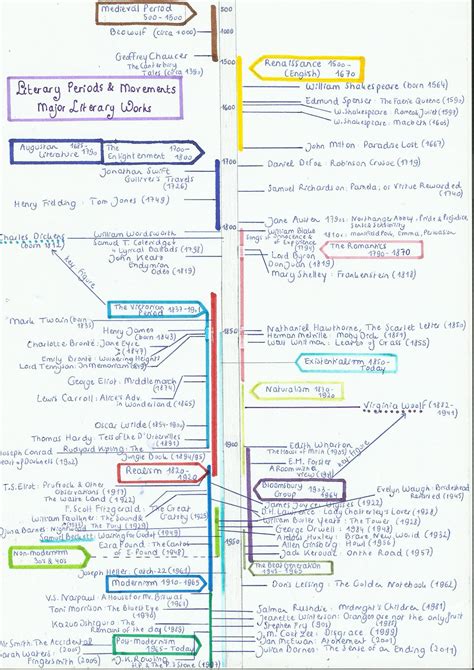 Medieval Period
500-1500
Beowulf (circa 1000)
Geoffrey Chaucer
The Canterbury
Tales (circa 1390)
Literary Periods & Movements
Major Literary Works
500
1000
1500
1600
1700
1800
1850
1900
1950
Renaissance 1500-
(English) 1670
William Shakespeare (born 1564)
Edmund Spenser - The Faerie Queene (1590)
W. Shakespeare - Romeo & Juliet
W. Shakespeare - Macbeth (1606)
John Milton - Paradise Lost (1667)
Augustan
Literature
The 1700-
Enlightenment 1800
Daniel Defoe - Robinson Crusoe (1719)
Jonathan Swift
Gulliver's Travels
(1726)
Samuel Richardson: Pamela, or Virtue Rewarded
(1740)
Henry Fielding: Tom Jones (1749)
Jane Austen Northanger Abbey, Pride & Prejudice
Sense & Sensibility
Mansfield Park, Emma, Persuasion
William Blake
Songs of Innocence &
of Experience
Charles Dickens
(born 1812)
key figure
William Wordsworth
Samuel T. Coleridge
Lyrical Ballads (1798)
John Keats
Endymion
Odes (1819)
The Romantics
1790-1870
Lord Byron
Don Juan (1819)
Mary Shelley: Frankenstein (1818)
The Victorian
Period
Mark Twain (born 1835)
Henry James
(born 1843)
Charlotte Brontë: Jane Eyre
(1847)
Emily Brontë: Wuthering Heights
Lord Tennyson: In Memoriam
George Eliot: Middlemarch
(1874)
Lewis Carroll: Alice's Adv.
in Wonderland (1865)
Nathaniel Hawthorne, The Scarlet Letter (1850)
Herman Melville: Moby Dick (1851)
Walt Whitman: Leaves of Grass (1855)
Existentialism 1850-
Today
Naturalism
Virginia Woolf (1882-
1941)
key figure
Oscar Wilde
Thomas Hardy: Tess of the D'Urbervilles
(1891)
Joseph Conrad
Heart of Darkness
Rudyard Kipling: The
Jungle Book
Edith Wharton
The House of Mirth (1905)
E.M. Forster
A Room with a
View
Realism
Bloomsbury
Group
Evelyn Waugh: Brideshead
Revisited (1945)
T.S. Eliot: Prufrock & Other
Observations (1917)
The Waste Land (1922)
F. Scott Fitzgerald: The Great
Gatsby (1925)
William Faulkner: The Sound &
The Fury (1929)
Djuna Barnes: Nightwood
Samuel Beckett: Waiting for Godot
Ezra Pound: The Cantos
of E. Pound (1948)
James Joyce: Ulysses (1922)
D.H. Lawrence: Lady Chatterley's Lover (1928)
William Butler Yeats: The Tower (1928)
George Orwell: 1984 (1948)
Aldous Huxley: Brave New World (1932)
Allen Ginsberg: Howl (1956)
Jack Kerouac: On the Road (1957)
The Beat Generation
Joseph Heller: Catch-22 (1961)
Modernism 1910-1965
Doris Lessing - The Golden Notebook (1962)
V.S. Naipaul: A House for Mr. Biswas
(1961)
Toni Morrison: The Bluest Eye
(1970)
Kazuo Ishiguro: The
Remains of the Day
Salman Rushdie: Midnight's Children (1981)
Jeanette Winterson: Oranges are not the only
fruit
Stephen Fry
J.M. Coetzee: Disgrace (1999)
Ian McEwan: Atonement (2001)
Julian Barnes: The Sense of an Ending (2011)
Post-Modernism
1965-Today
Ali Smith: The Accidental
Sarah Waters:
Fingersmith
J.K. Rowling